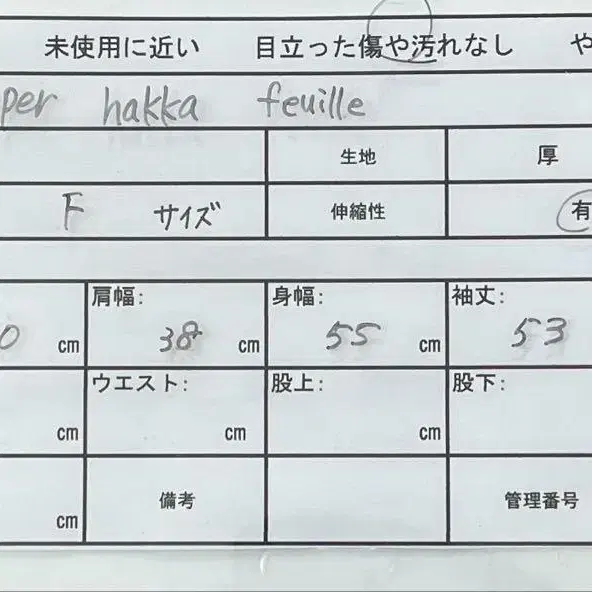 未使用に近い 目立った傷や汚れなし や
per hakka feuille
生地 厚
F サイズ 伸縮性 有
肩幅: 身幅: 袖丈:
0 cm 38 cm 55 cm 53
ウエスト: 股上: 股下:
cm cm cm
備考 管理番号
cm